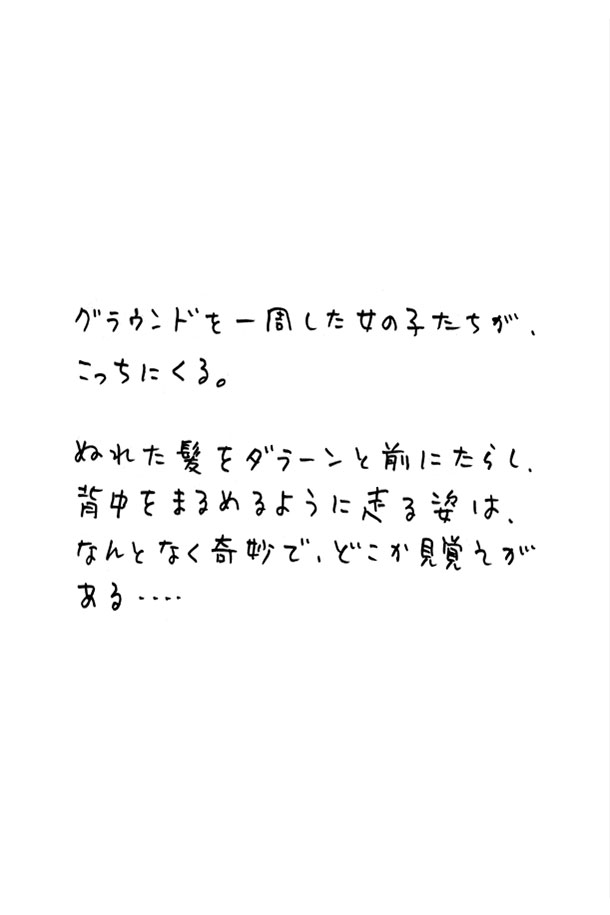 グラウンドを一周した女の子たちが、
こっちにくる。
ぬれた髪をダラーンと前にたらし、
背中をまるめるように走る姿は、
なんとなく奇妙で、どこか見覚えが
ある‥‥